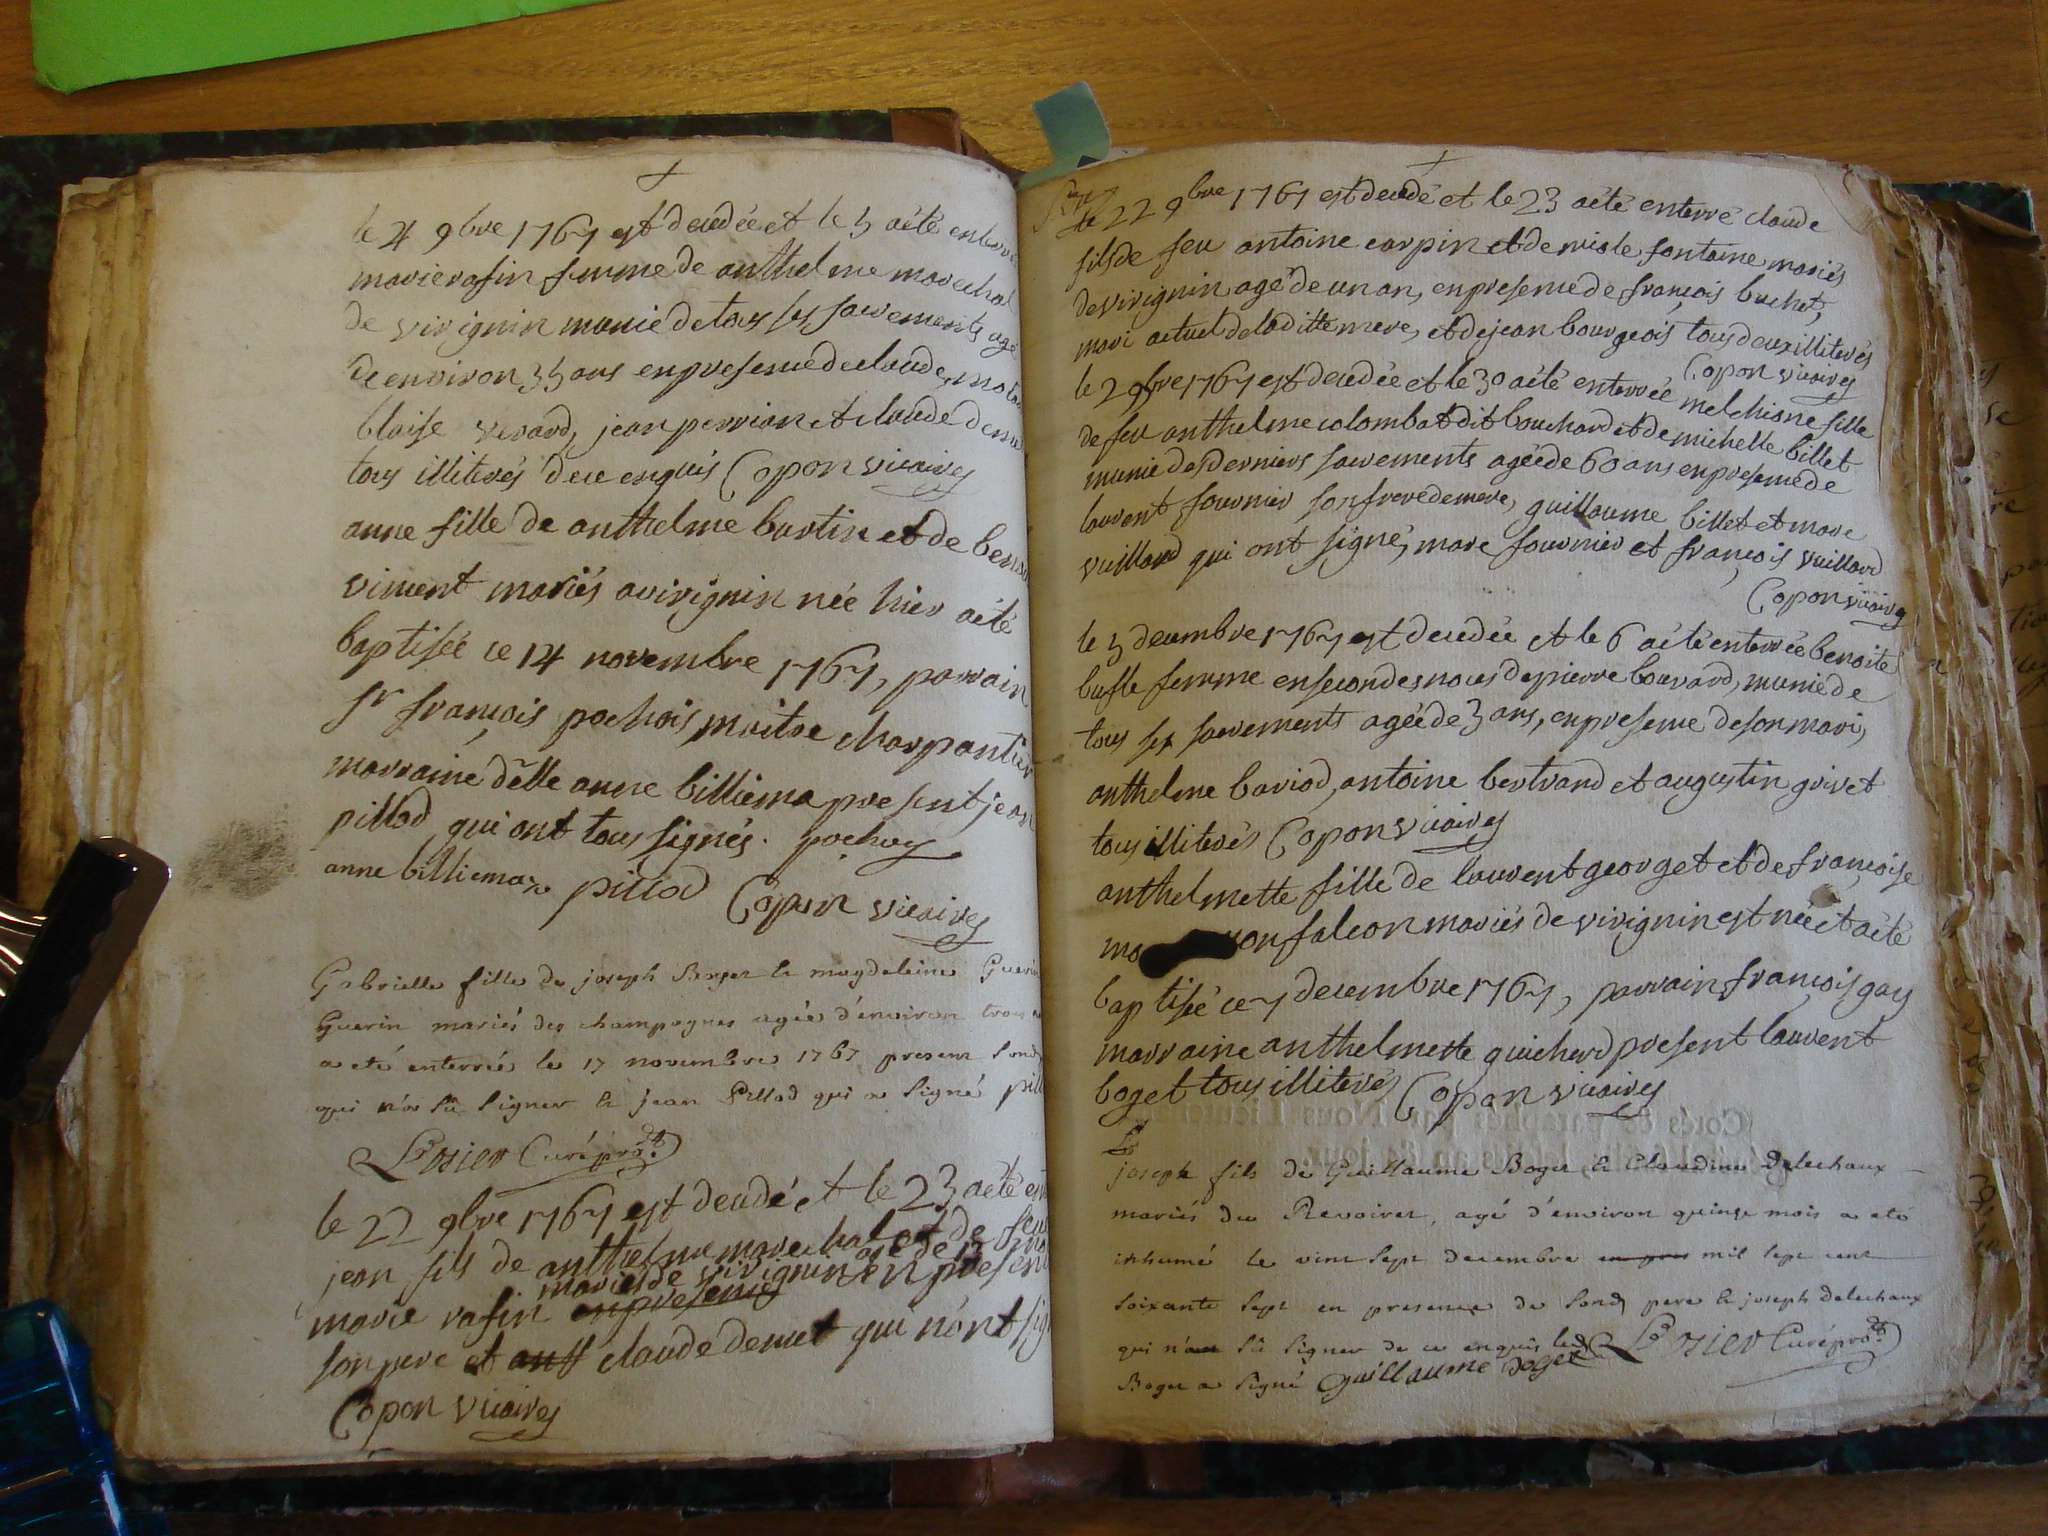 le 4 9bre 1767 est decedée et le 5 aété enterré
marie rafin femme de anthelme marechal
de virignin munie de tous ses sacrements agé
de environ 35 ans en presence de claude
blaise verard, jean perrian et claude demu
tous illiterés de ce enquis Copon vicaire
anne fille de anthelme burtin et de
vincent mariés a virignin née hier aété
baptisée ce 14 novembre 1767, parrain
sr françois pochois, maitre charpantier
marraine delle anne billiema present jean
pillod qui ont tous signés. pochoy
anne billiemaz pillod Copon vicaire
Gabrielle fille de joseph Boget & magdeleine Guerin
Guerin mariés des champagnes agée d'environ trois
a eté enterrée le 17 novembre 1767 present
qui n'a sû signer & jean Pillod qui a signé pill
Curé
le 22 9bre 1767 est decedé et le 23 aété en
jean fils de anthelme marechal et de feue
mariés de virignin agé de
marie rafin enpresence en presen
son pere et claude demut qui nont sig
Copon vicaire
le 22 9bre 1767 est decedé et le 23 aété enterré claude
fils de feu antoine carpin et de nicole fontaine mariés
de virignin agé de un an, en presence de françois buchet,
mari actuel de laditte mere, et de jean bourgeois tous deux illiterés
Copon vicaire
le 29bre 1767 est decedée et le 30 aété enterrée melchisne fille
de feu anthelme colombat dit bouchard et de michelle billet
munie des derniers sacrements agée de 60 ans en presence de
laurent fournier son frere de mere, guillaume billet et marc
vuillard qui ont signé, marc fournier et françois vuillard
Copon vicaire
le 5 decembre 1767 est decedée et le 6 aété enterrée benoite
bufle femme en secondes noces de pierre bouvard, munie de
tous ses sacrements agée de 3 ans, en presence de son mari,
anthelme bariod, antoine bertrand et augustin grivet
tous illiterés Copon vicaire
anthelmette fille de laurent georget et de françoise
ma falcon mariés de virignin est née et aété
baptisée ce 7 decembre 1767, parrain françois gay
marraine anthelmette guicherd present laurent
boget tous illiterés Copon vicaire
joseph fils de Guillaume Boget & Claudine Delechaux
mariés du Revoiret, agé d'environ quinze mois a eté
inhumé le vint sept decembre mil sept cent
soixante sept en presence de sond pere & joseph delechaux
qui n'a sû signer de ce enquis led Curé
Boget a signé Guillaume Boget